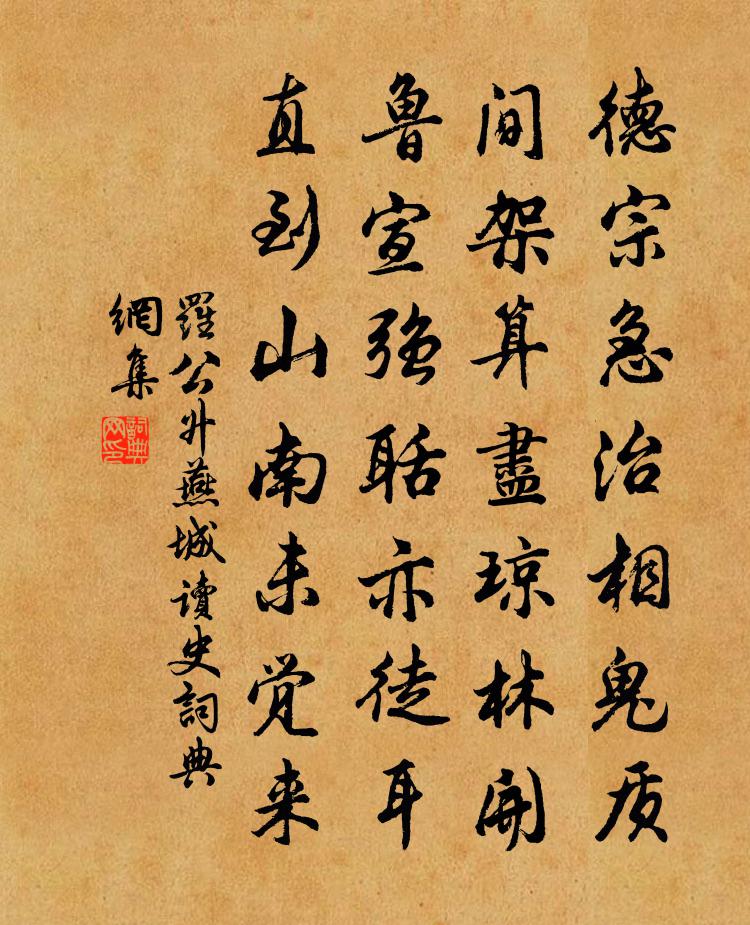 德宗急治相鬼质
间架算盡琼林開
鲁宣强聒亦徒耳
直到山南未觉来
羅公升燕城讀史詞典
網集
詞典網印